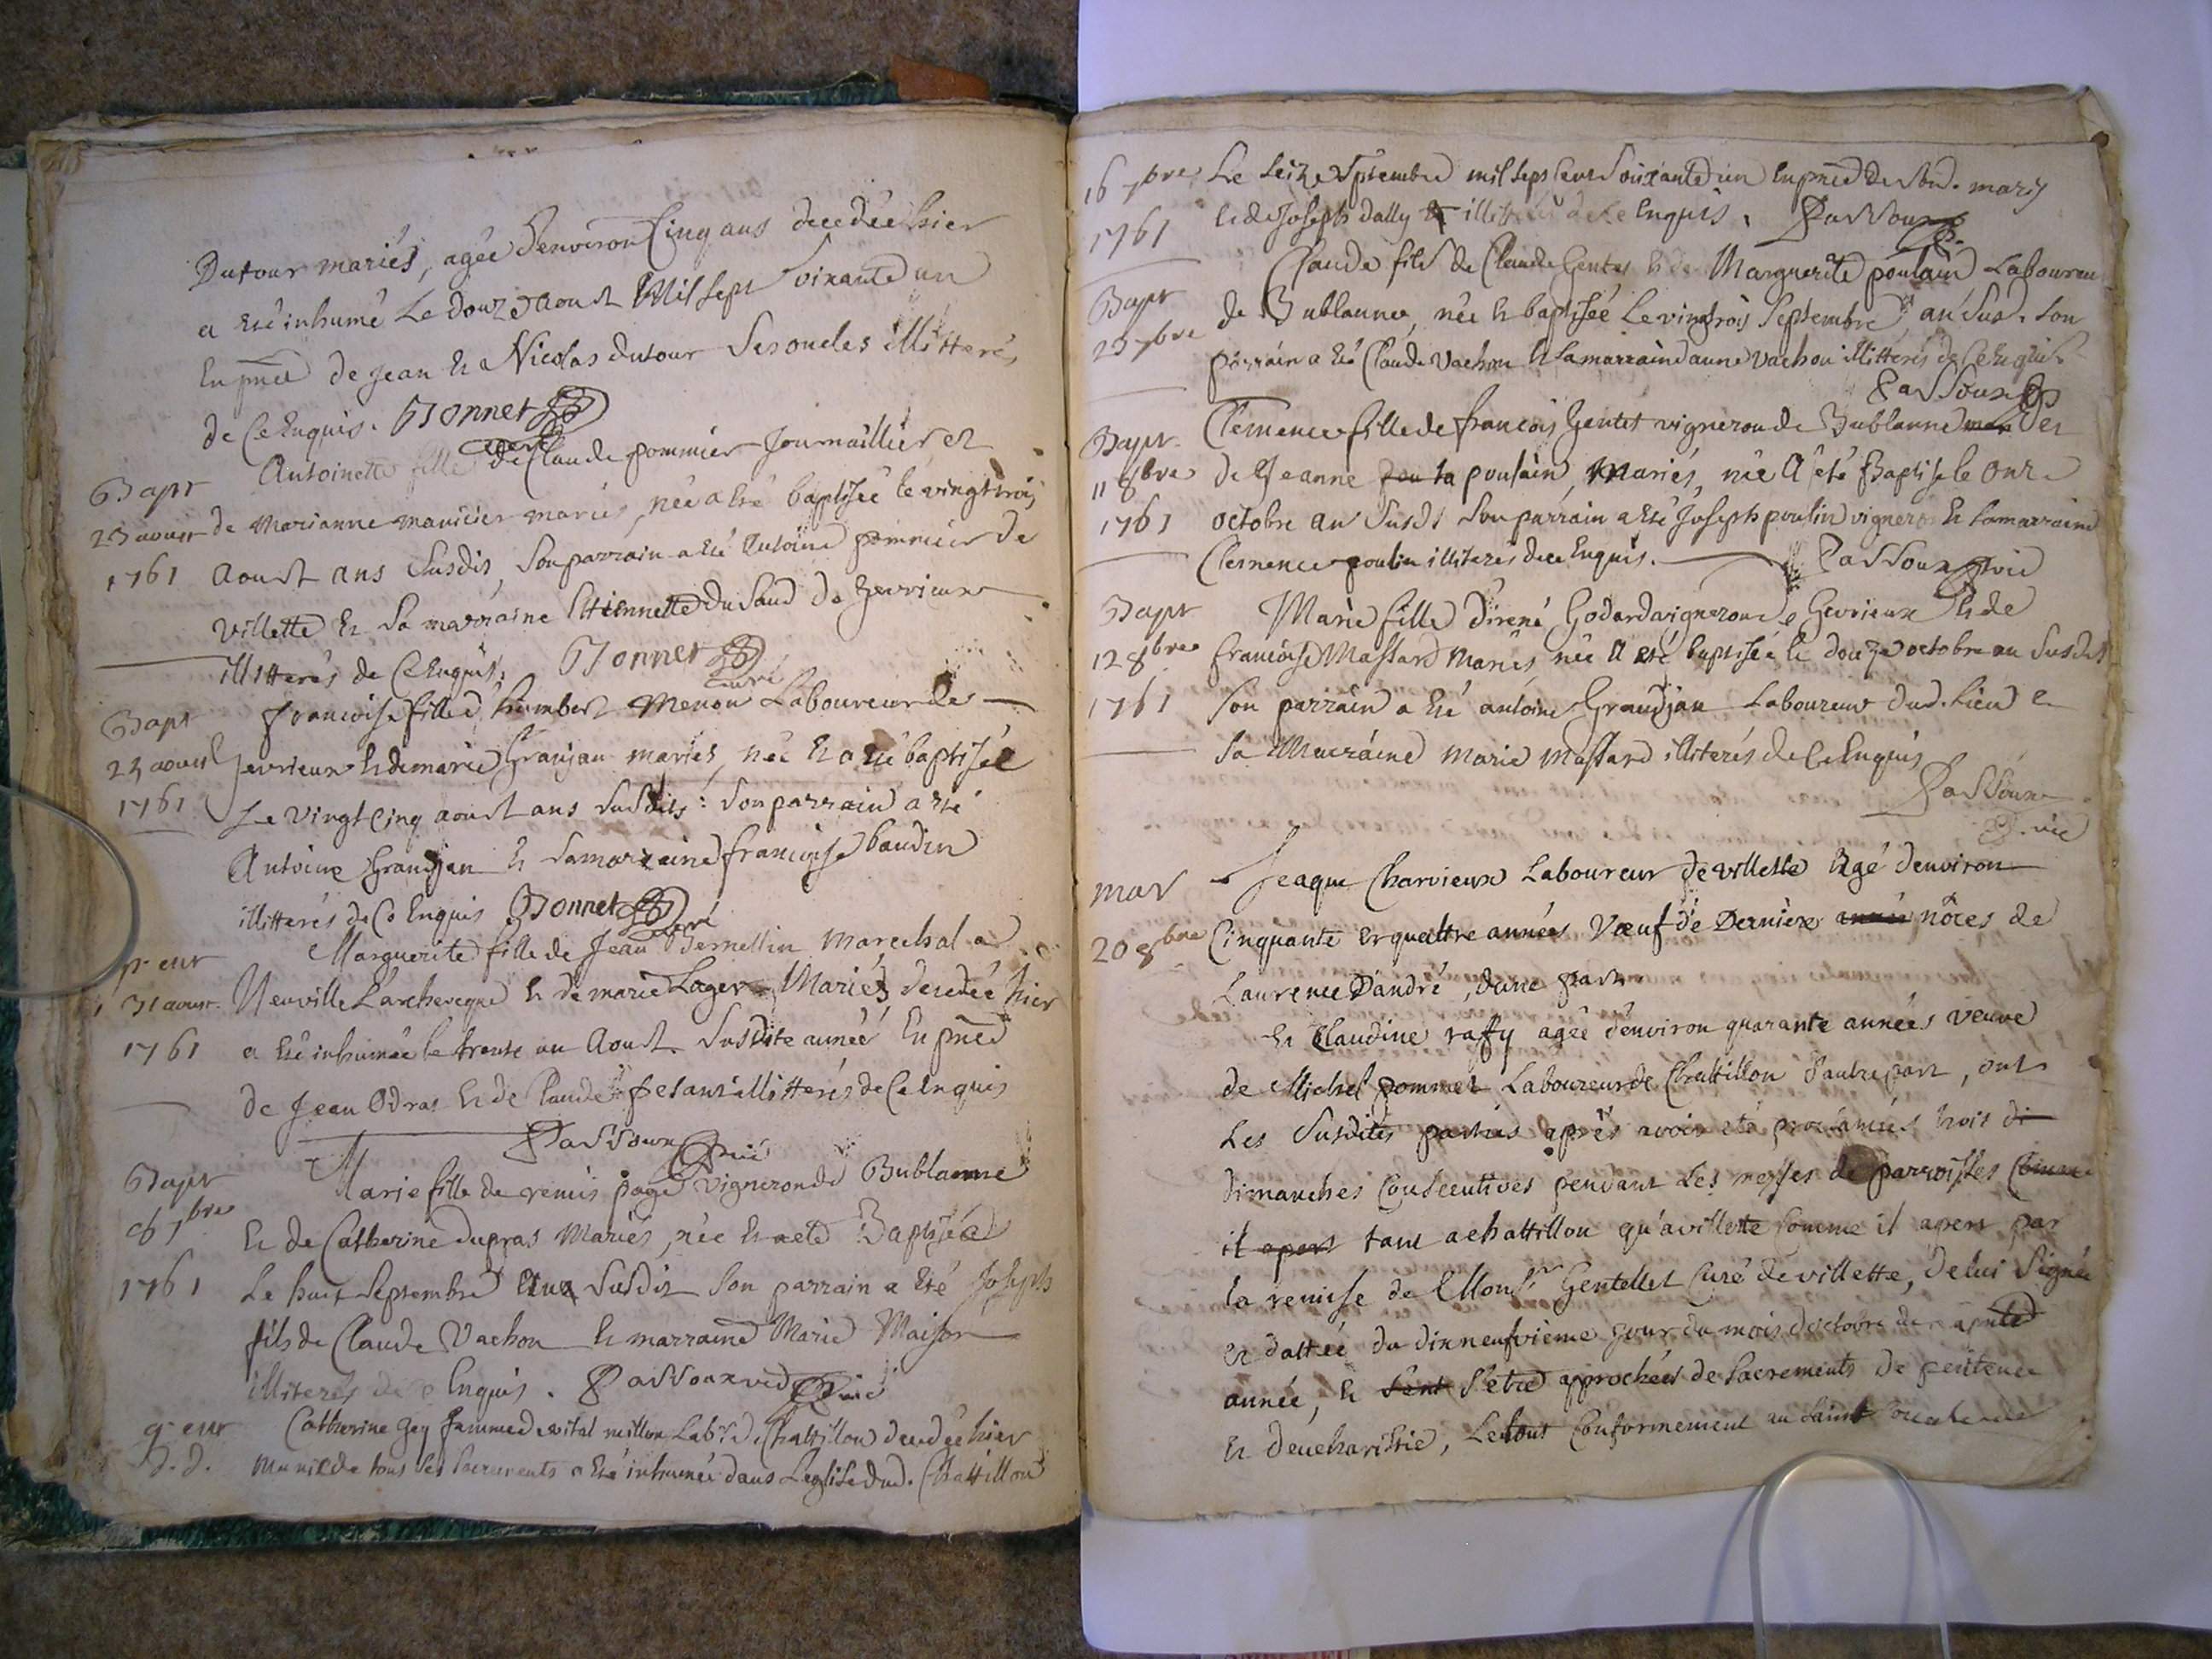 Dutour mariés, agée d'environ Cinq ans decedée hier
a eté inhumé Le douze aoust Mil sept soixante un
En pnce de jean et Nicolas dutour ses oncles illitterés
de Ce Enquis. Bonnet
curé
Bapt Antoinette fille de Claude pommier Journaillier et
23 aoust de Marianne manicier mariés, née a eté baptisée le vingt trois
1761 aoust ans susdis, son parrain a eté Antoine pommier de
Villette et sa marraine Etiennette du Saud de Gevrieux
illitterés de Ce Enquis. Bonnet
curé
Bapt francoise fille d'humbert Menon Laboureur de
25 aoust Jevrieux et de marie Granjan mariés, née et a eté baptisée
1761 Le vingt Cinq aoust ans susdits : son parrain a eté
Antoine Grandjan et sa marraine francoise baudin
illitterés de Ce Enquis Bonnet
curé
Marguerite fille de Jean Bernellin Marechal a
31 aoust. Neuville Larcheveque et de marie Lager Mariés decedée hier
1761 a eté inhumée le trente un Aoust susdite année En pnce
de Jean Odras et de Claude fetant illitterés de Ce Enquis
Passoux vic
Bapt Marie fille de remis page vigneron de Bublanne
8 7bre Et de Catherine dupras Mariés, née et a eté Baptisée
1761 Le huit septembre Ans susdit son parrain a eté Joseph
fils de Claude Vachon et marraine Marie Maison
illiterés de Ce Enquis. Passoux vic
Catherine Gey femme de vital millon Labr de Chattillon decedée hier
d. d. munie de tous les sacrements a eté inhumée dans Leglise dud. Chattillon
16 7bre Le seize septembre mil sept cent soixante un En pnce de sond. mary
1761 et de Joseph dally illitterés de Ce Enquis. Passoux
Bapt Claude fils de Claude Gentet et de Marguerite poulain Laboureur
23 7bre de Bublanne, née et baptisée Le vingtrois septembre an susd. son
parrain a eté Claude Vachon et sa marraine anne Vachon illitterés de Ce Enquis
Passoux
Bapt. Clemence fille de francois Gentet vigneron de Bublanne et
11 8bre de Jeanne poulain, Mariés, née a eté Baptise le onze
1761 octobre an susdt son parrain a eté Joseph poulin vigneron et sa marraine
Clemence poulin illiterés de ce Enquis. Passoux vic
Bapt Marie fille d'irené Godard vigneron de Gevrieux et de
12 8bre francoise Massard Mariés née a eté baptisée le douze octobre an susdit
1761 son parrain a eté antoine Grandjan Laboureur dud. Lieu et
sa Marraine Marie Massard illiterés de Ce Enquis
Passoux
vic
mar Jeaque Charvieux Laboureur de villette agé d'environ
20 8bre Cinquante et quattre années Vœuf de Derniere année nôces de
Laurence D'andré, d'une part
et Claudine raffy agée d'environ quarante années veuve
de Michel pommet Laboureur de Chattillon d'autre part, ont
Les susdites parties aprés avoir eté proclamés trois di
dimanches Consecutives pendant Les messes de parroisses Comme
il apert tant a chattillon qu'a villette Comme il apert par
la remise de Monsr Gentellet Curé de villette, de lui signée
et dattée du dixneufvieme jour du mois d'octobre de
année, et sont s'être approchées de sacrements de penitence
et d'eucharistie, Le tout Conformement au saint